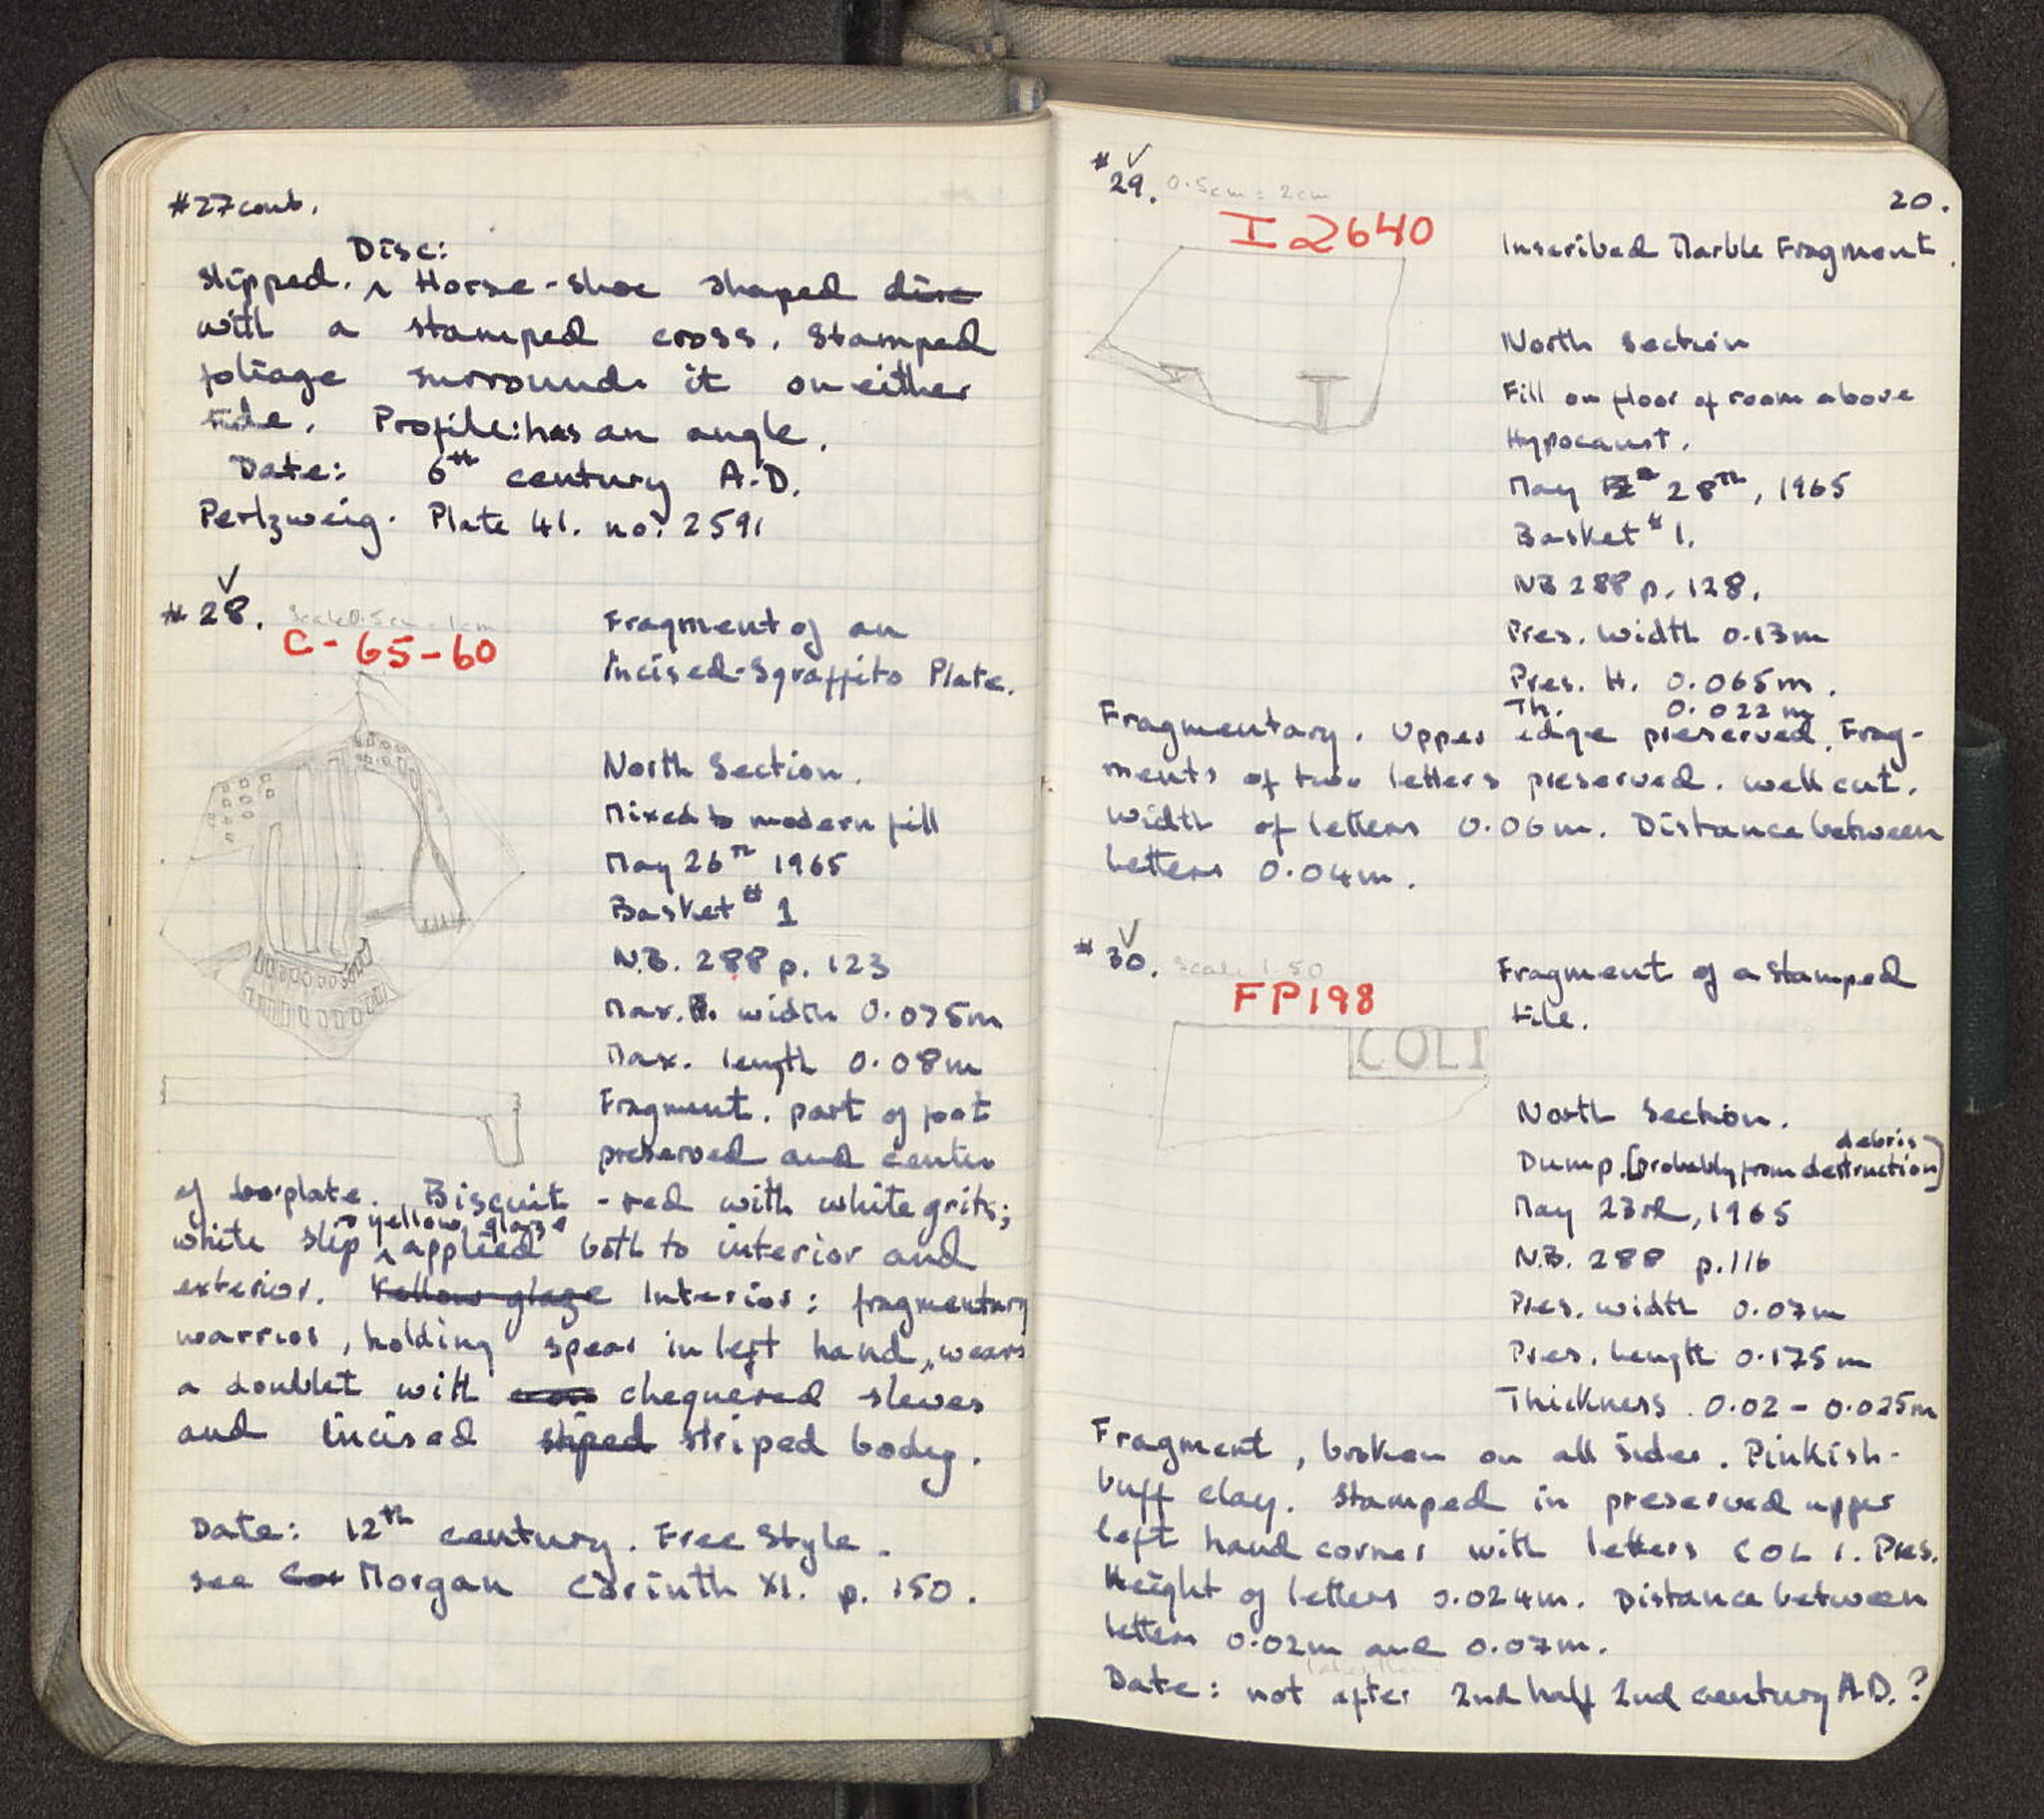 #27 cont.
Disc:
slipped. ^ Horse-shoe shaped disc
with a stamped cross. Stamped
foliage surrounds it on either
side. Profile: has an angle.
Date: 6th century A.D.
Perlzweig. Plate 41. no: 2591
✓
#28. Scale 0.5cm = 1cm
C-65-60
Fragment of an
Incised-Sgraffito Plate.
North Section.
Mixed to modern fill
May 26th 1965
Basket # 1
N.B. 288 p. 123
Max. width 0.075m
Max. length 0.08m
Fragment. part of foot
preserved and center
of plate. Biscuit - red with white grits;
yellow glaze
white slip ^ applied both to interior and
exterior. Yellow glaze Interior: fragmentary
warrior, holding spear in left hand, wears
a doublet with chequered sleves
and incised stiped striped body.
Date: 12th century. Free Style.
see Cor Morgan Corinth XI. p. 150.
20.
# ✓
29. 0.5cm = 2cm
I 2640
Inscribed Marble Fragment.
North Section
Fill on floor of room above
Hypocaust.
May 28th, 1965
Basket # 1.
NB 288 p. 128.
Pres. Width 0.13m
Pres. H. 0.065m.
Th. 0.022m
Fragmentary. Upper edge preserved. Frag-
ments of two letters preserved. well cut.
Width of letters 0.06m. Distance between
letters 0.04m.
✓
#30. Scale 1:50
FP198
COLI
Fragment of a Stamped
tile.
North Section.
debris
Dump. [probably from destruction]
May 23rd, 1965
N.B. 288 p. 116
Pres. width 0.07m
Pres. length 0.175m
Thickness. 0.02 - 0.025m
Fragment, broken on all sides. Pinkish-
buff clay. Stamped in preserved upper
left hand corner with letters COL I. Pres.
Height of letters 0.024m. Distance between
letters 0.02m and 0.07m.
later than
Date: not after 2nd half 2nd century A.D.?